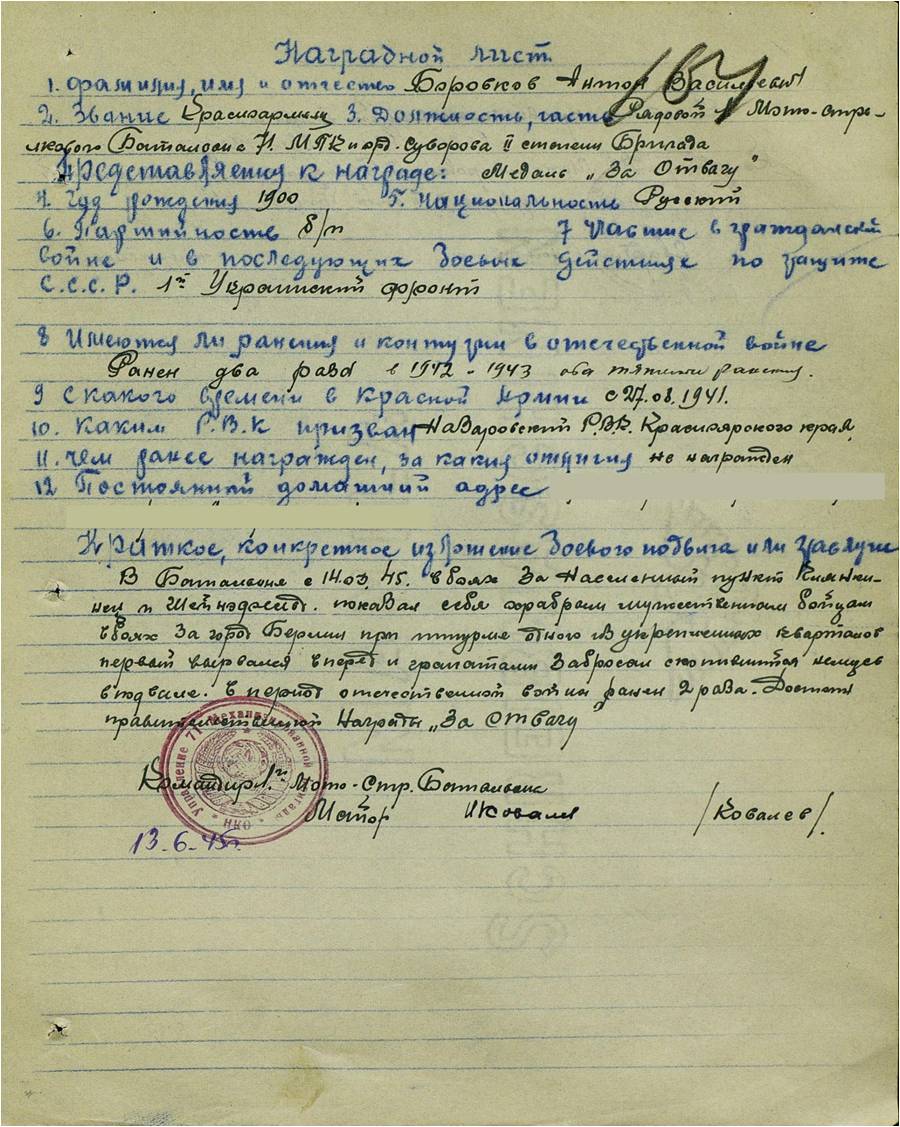 Наградной лист
157
1. Фамилия, имя и отчество Боровков Антон Васильевич
2. Звание Красноармеец 3. Должность, часть Рядовой 1 Мото-стре-
лкового Баталиона 71. орд. Суворова II степени Бригада
Представляется к награде: Медаль „За Отвагу"
4. Год рождения 1900 5. Национальность Русский
6. Партийность б/п 7 Участие в гражданской
войне и в последующих боевых действиях по защите
С.С.С.Р. 1й Украинский фронт
8 Имеются ли ранения и контузии в отечественной войне
Ранен два раза в 1942-1943 оба тяжелые ранения.
9 С какого времени в Красной Армии с 27.08.1941.
10. Каким Р.В.К призван Назаровский Р.В.К. Красноярского края
11. Чем ранее награжден, за какия отличия не награжден
12 Постоянный домашний адрес
Краткое, конкретное изложение боевого подвига или заслуги
В Батальоне с 14.03.45. в боях за населенный пункт
и показал себя храбрым мужественным бойцом
в боях за город Берлин при штурме одного из укрепленных кварталов
первый вырвался вперед и гранатами забросал скопившихся немцев
в подвале. В период отечественной войны ранен 2 раза. Достоин
правительственной Награды „За Отвагу"
Управление 71 механизированной бригады * НКО *
Командир 1го Мото-Стр. Батальона
Майор Ковалев /Ковалев/.
13.6.45г.